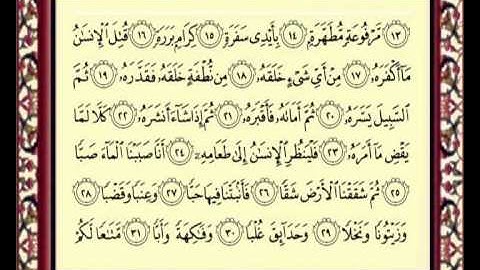 ١٣ مَّرْفُوعَةٍ مُّطَهَّرَةٍۭ ١٤ بِأَيْدِى سَفَرَةٍ ١٥ كِرَامٍۭ بَرَرَةٍ ١٦ قُتِلَ ٱلْإِنسَٰنُ
مَآ أَكْفَرَهُۥ ١٧ مِنْ أَىِّ شَىْءٍ خَلَقَهُۥ ١٨ مِن نُّطْفَةٍ خَلَقَهُۥ فَقَدَّرَهُۥ ١٩ ثُمَّ
ٱلسَّبِيلَ يَسَّرَهُۥ ٢٠ ثُمَّ أَمَاتَهُۥ فَأَقْبَرَهُۥ ٢١ ثُمَّ إِذَا شَآءَ أَنشَرَهُۥ ٢٢ كَلَّا لَمَّا
يَقْضِ مَآ أَمَرَهُۥ ٢٣ فَلْيَنظُرِ ٱلْإِنسَٰنُ إِلَىٰ طَعَامِهِۦٓ ٢٤ أَنَّا صَبَبْنَا ٱلْمَآءَ صَبًّا
٢٥ ثُمَّ شَقَقْنَا ٱلْأَرْضَ شَقًّا ٢٦ فَأَنۢبَتْنَا فِيهَا حَبًّا ٢٧ وَعِنَبًا وَقَضْبًا ٢٨
وَزَيْتُونًا وَنَخْلًا ٢٩ وَحَدَآئِقَ غُلْبًا ٣٠ وَفَٰكِهَةً وَأَبًّا ٣١ مَّتَٰعًا لَّكُمْ